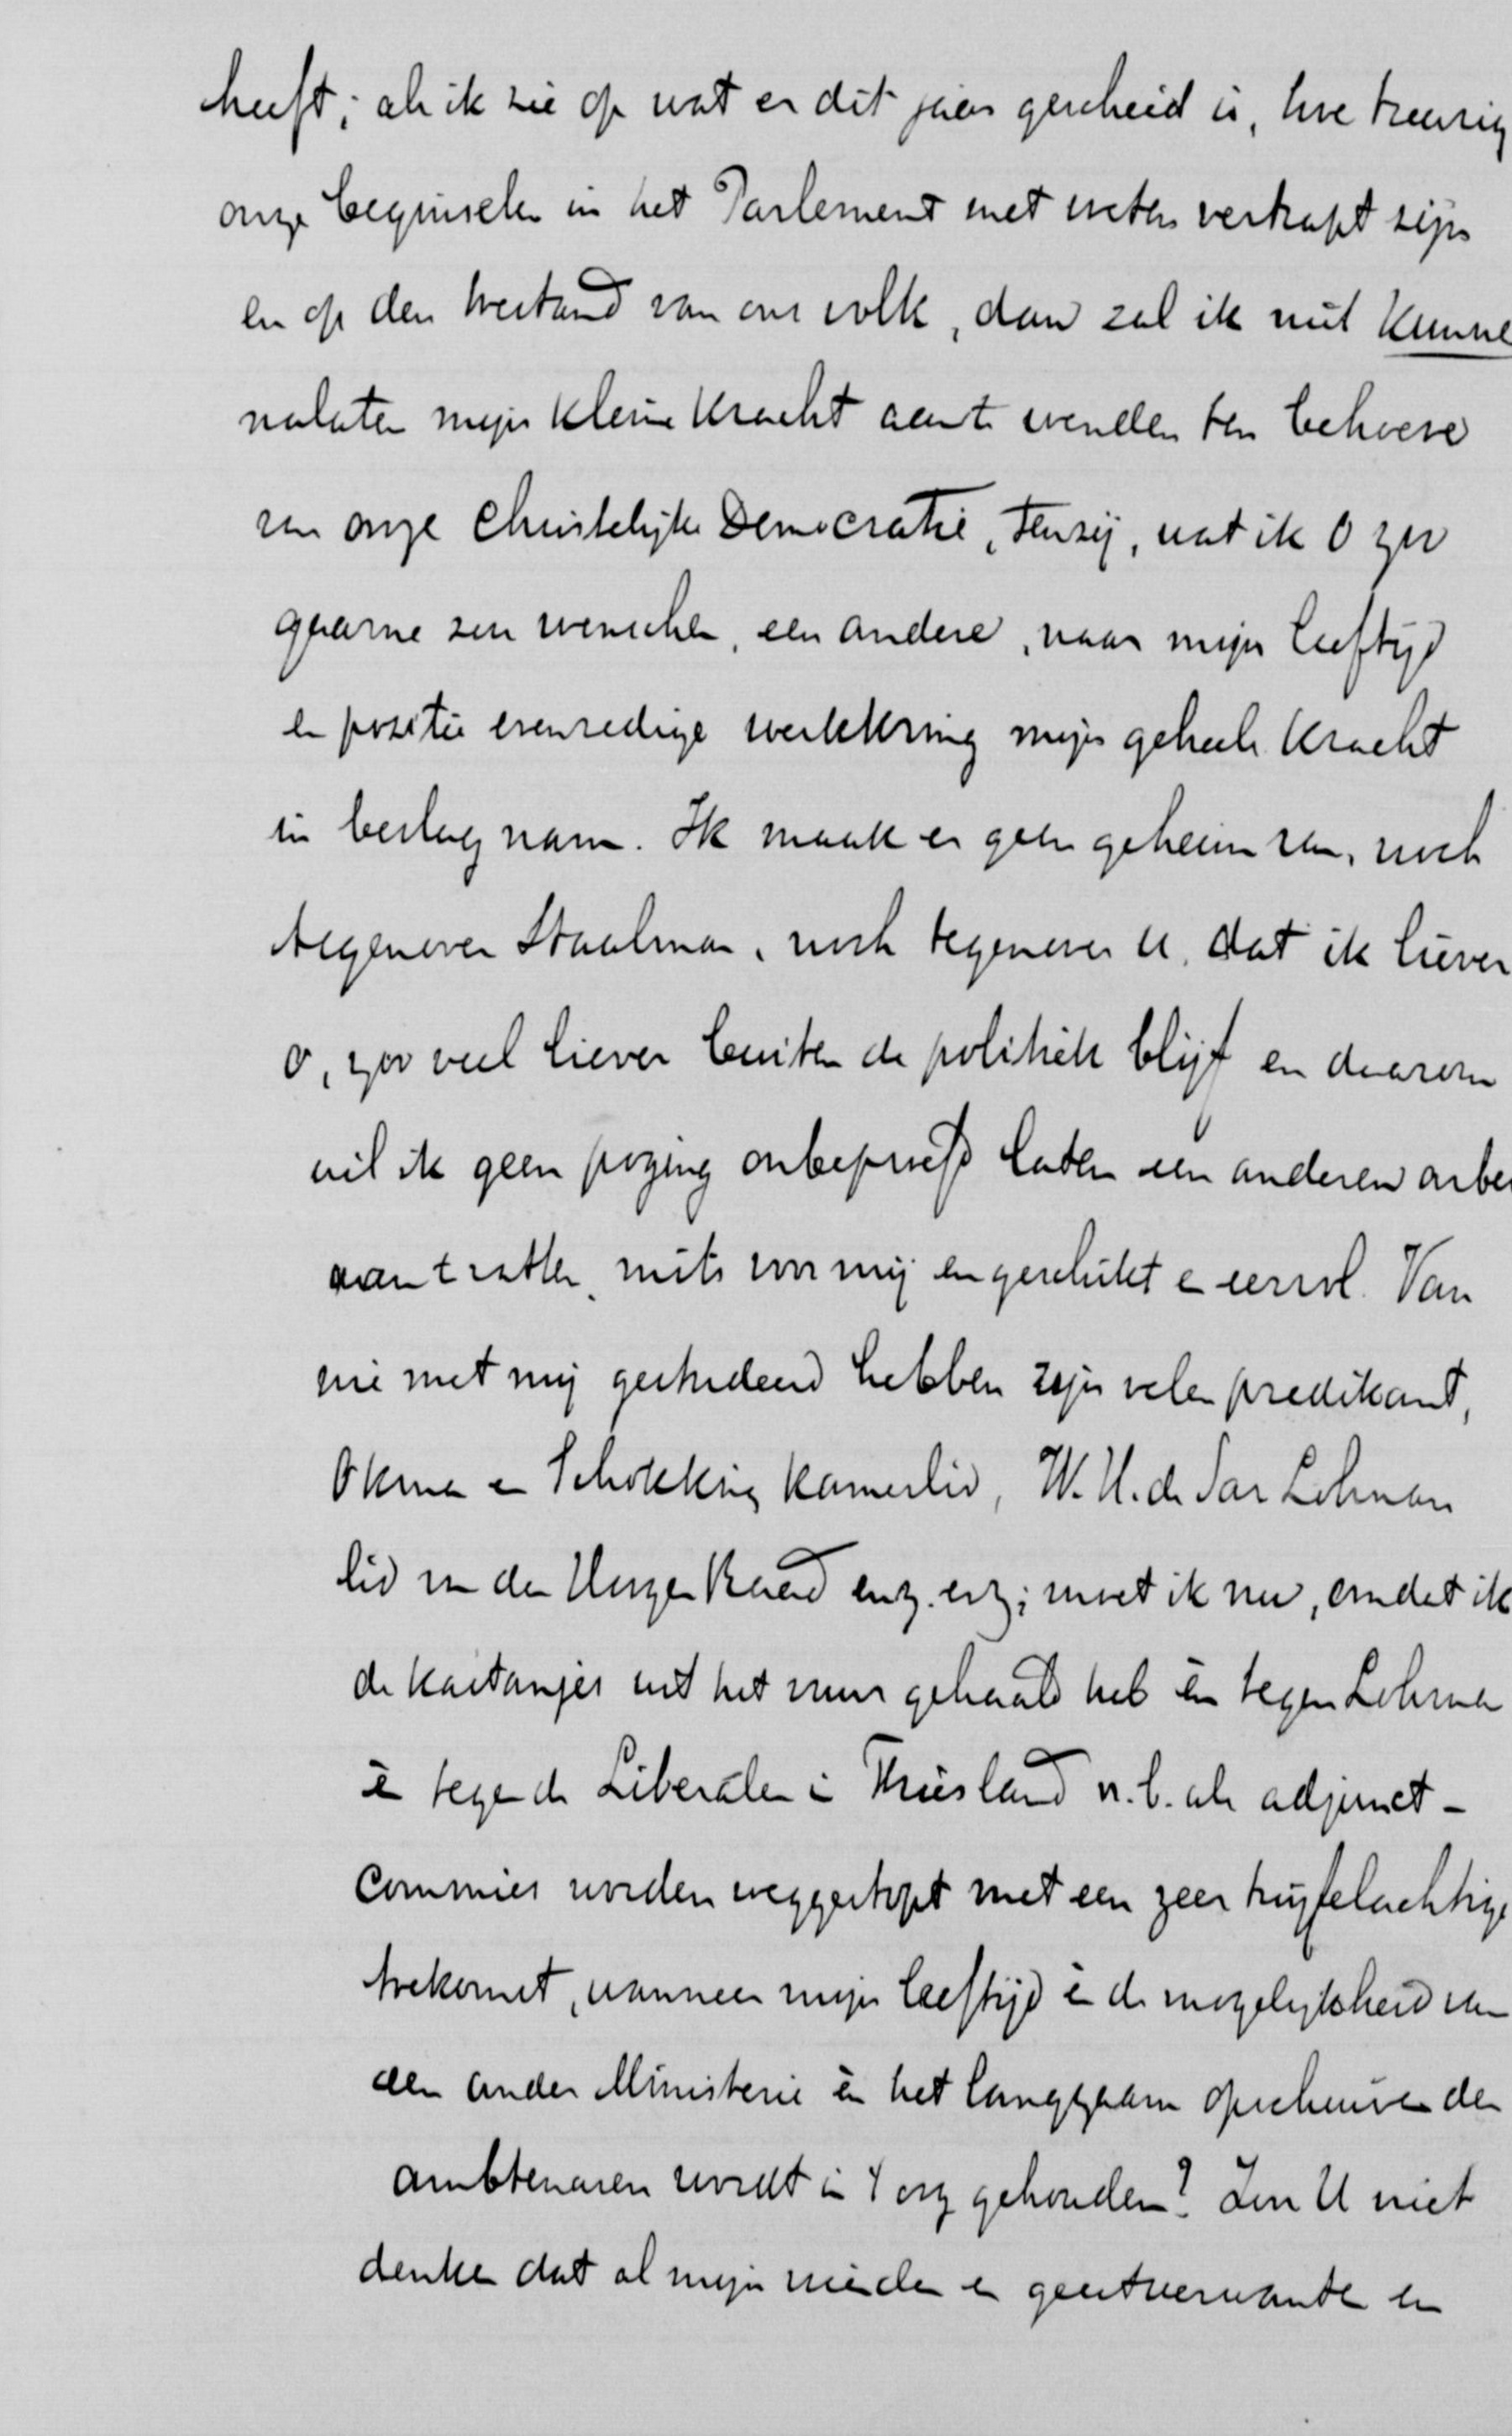 heeft; als ik zie op wat er dit jaar geschied is, hoe treurig
onze beginselen in het Parlement met voeten vertrapt zijn
en op den toestand van ons volk, dan zal ik niet kunne
nalaten mijn kleine kracht aan te wenden ten behoeve
van onze Christelijke Democratie, tenzij, wat ik o zoo
gaarne zou wenschen, een andere, naar mijn leeftijd
en positie evenredige werkkring mijn geheele kracht
in beslag nam. Ik maak er geen geheim van, noch
tegenover Staalman, noch tegenover U, dat ik liever
o, zoo veel liever buiten de politiek blijf en daarom
wil ik geen poging onbeproefd laten een anderen arbei
aan t vatten, mits voor mij en geschikt en eervol. Van
wie met mij gestudeerd hebben zijn velen predikant,
Okma en Schokking Kamerlid, W. H. de Sav Lohman
lid van den Hoogen Raad enz. enz; moet ik nu, omdat ik
de kastanjes uit het vuur gehaald heb èn tegen Lohman
èn tegen de Liberalen in Friesland n.b. als adjunct-
Commies worden weggestopt met een zeer twijfelachtige
toekomst, wanneer mijn leeftijd èn de mogelijkheid van
een ander Ministerie èn het langzaam opschuiven der
ambtenaren wordt in 't oog gehouden? Zou U niet
denken dat al mijn vrienden en geestverwanten en